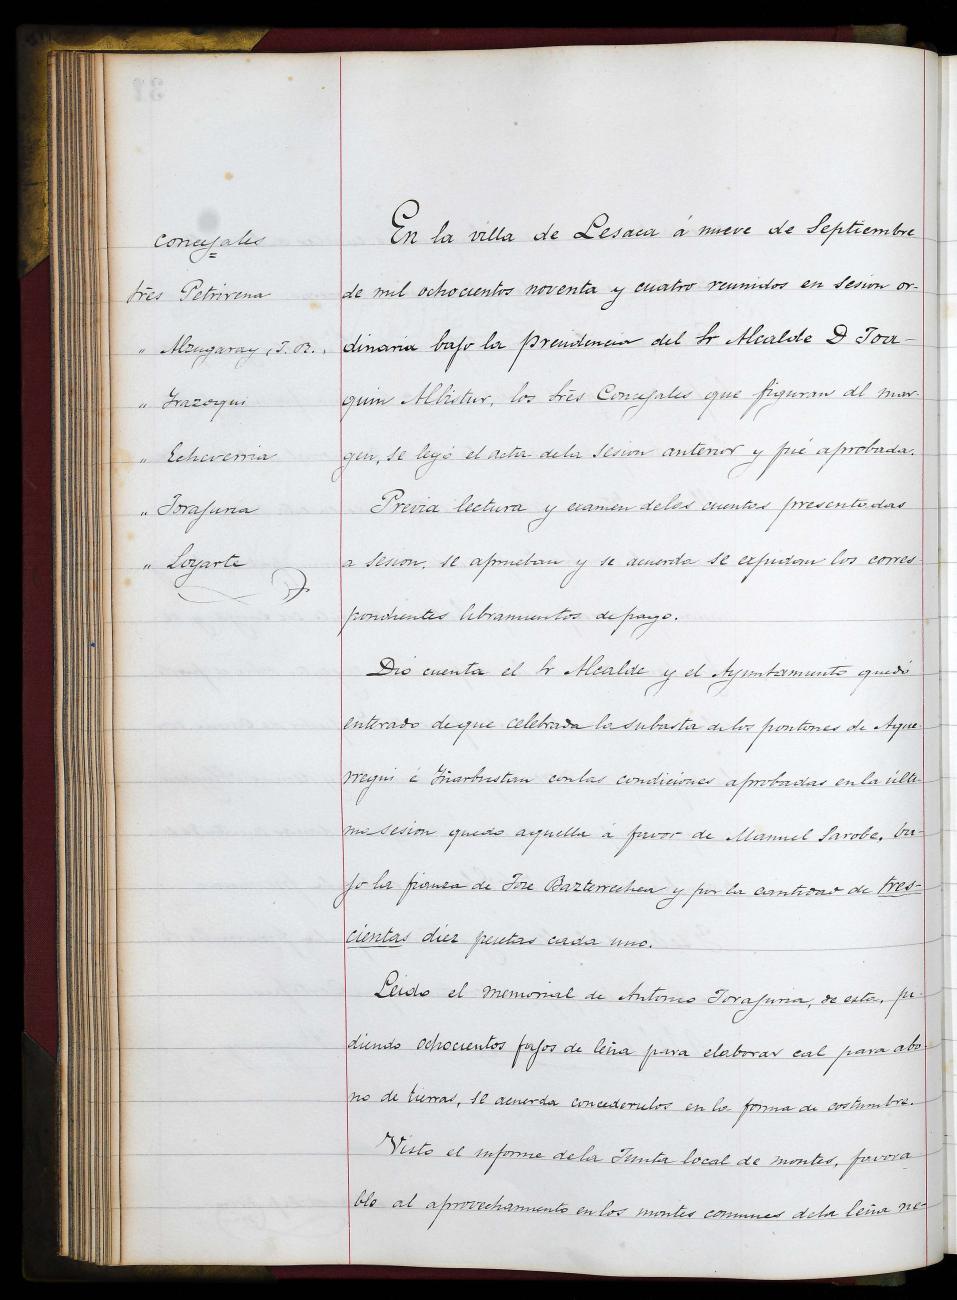 Concejales
En la villa de Lesaca á nueve de Septiembre
tres Petrirena
de mil ochocientos noventa y cuatro reunidos en sesion or-
" Alzugaray, J. R.,
dinaria bajo la presidencia del Sr Alcalde D Joa-
" Irazoqui
quin Albistur, los tres Concejales que figuran al mar-
" Echeverria
gen, se leyó el acta dela sesion anterior y fué aprobada.
" Torajuria
Previa lectura y examen delas cuentas presentadas
" Loyarte
a sesion, se aprueban y se acuerda se expidan los corres
pondientes libramientos de pago.
Dió cuenta el Sr Alcalde y el Ayuntamiento quedó
enterado de que celebrada la subasta delos pontones de Ague-
rregui é Iñarbustan con las condiciones aprobadas en la últi-
ma sesion quedo aquella á favor de Manuel Sarobe, ba-
jo la fianza de Jose Bazterrechea y por la cantidad de tres-
cientas diez pesetas cada uno.
Leido el memorial de Antonio Torajuria, de esta, pi-
diendo ochocientos fajos de leña para elaborar cal para abo-
no de tierras, se acuerda concederselos en la forma de costumbre.
Visto el informe dela Junta local de montes, favora
ble al aprovechamiento en los montes comunes dela leña ne-